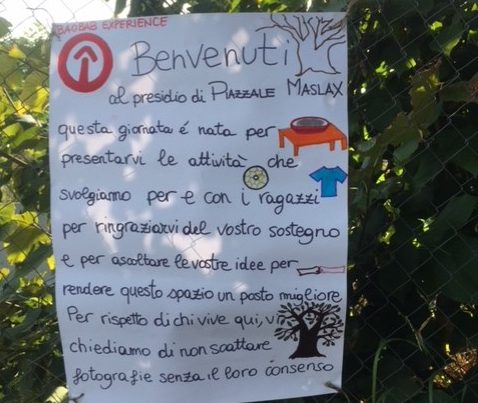 BAOBAB EXPERIENCE
Benvenuti
al presidio di PIAZZALE MASLAX
questa giornata é nata per
presentarvi le attività che
svolgiamo per e con i ragazzi
per ringraziarvi del vostro sostegno
e per ascoltare le vostre idee per
rendere questo spazio un posto migliore
Per rispetto di chi vive qui, vi
chiediamo di non scattare
fotografie senza il loro consenso